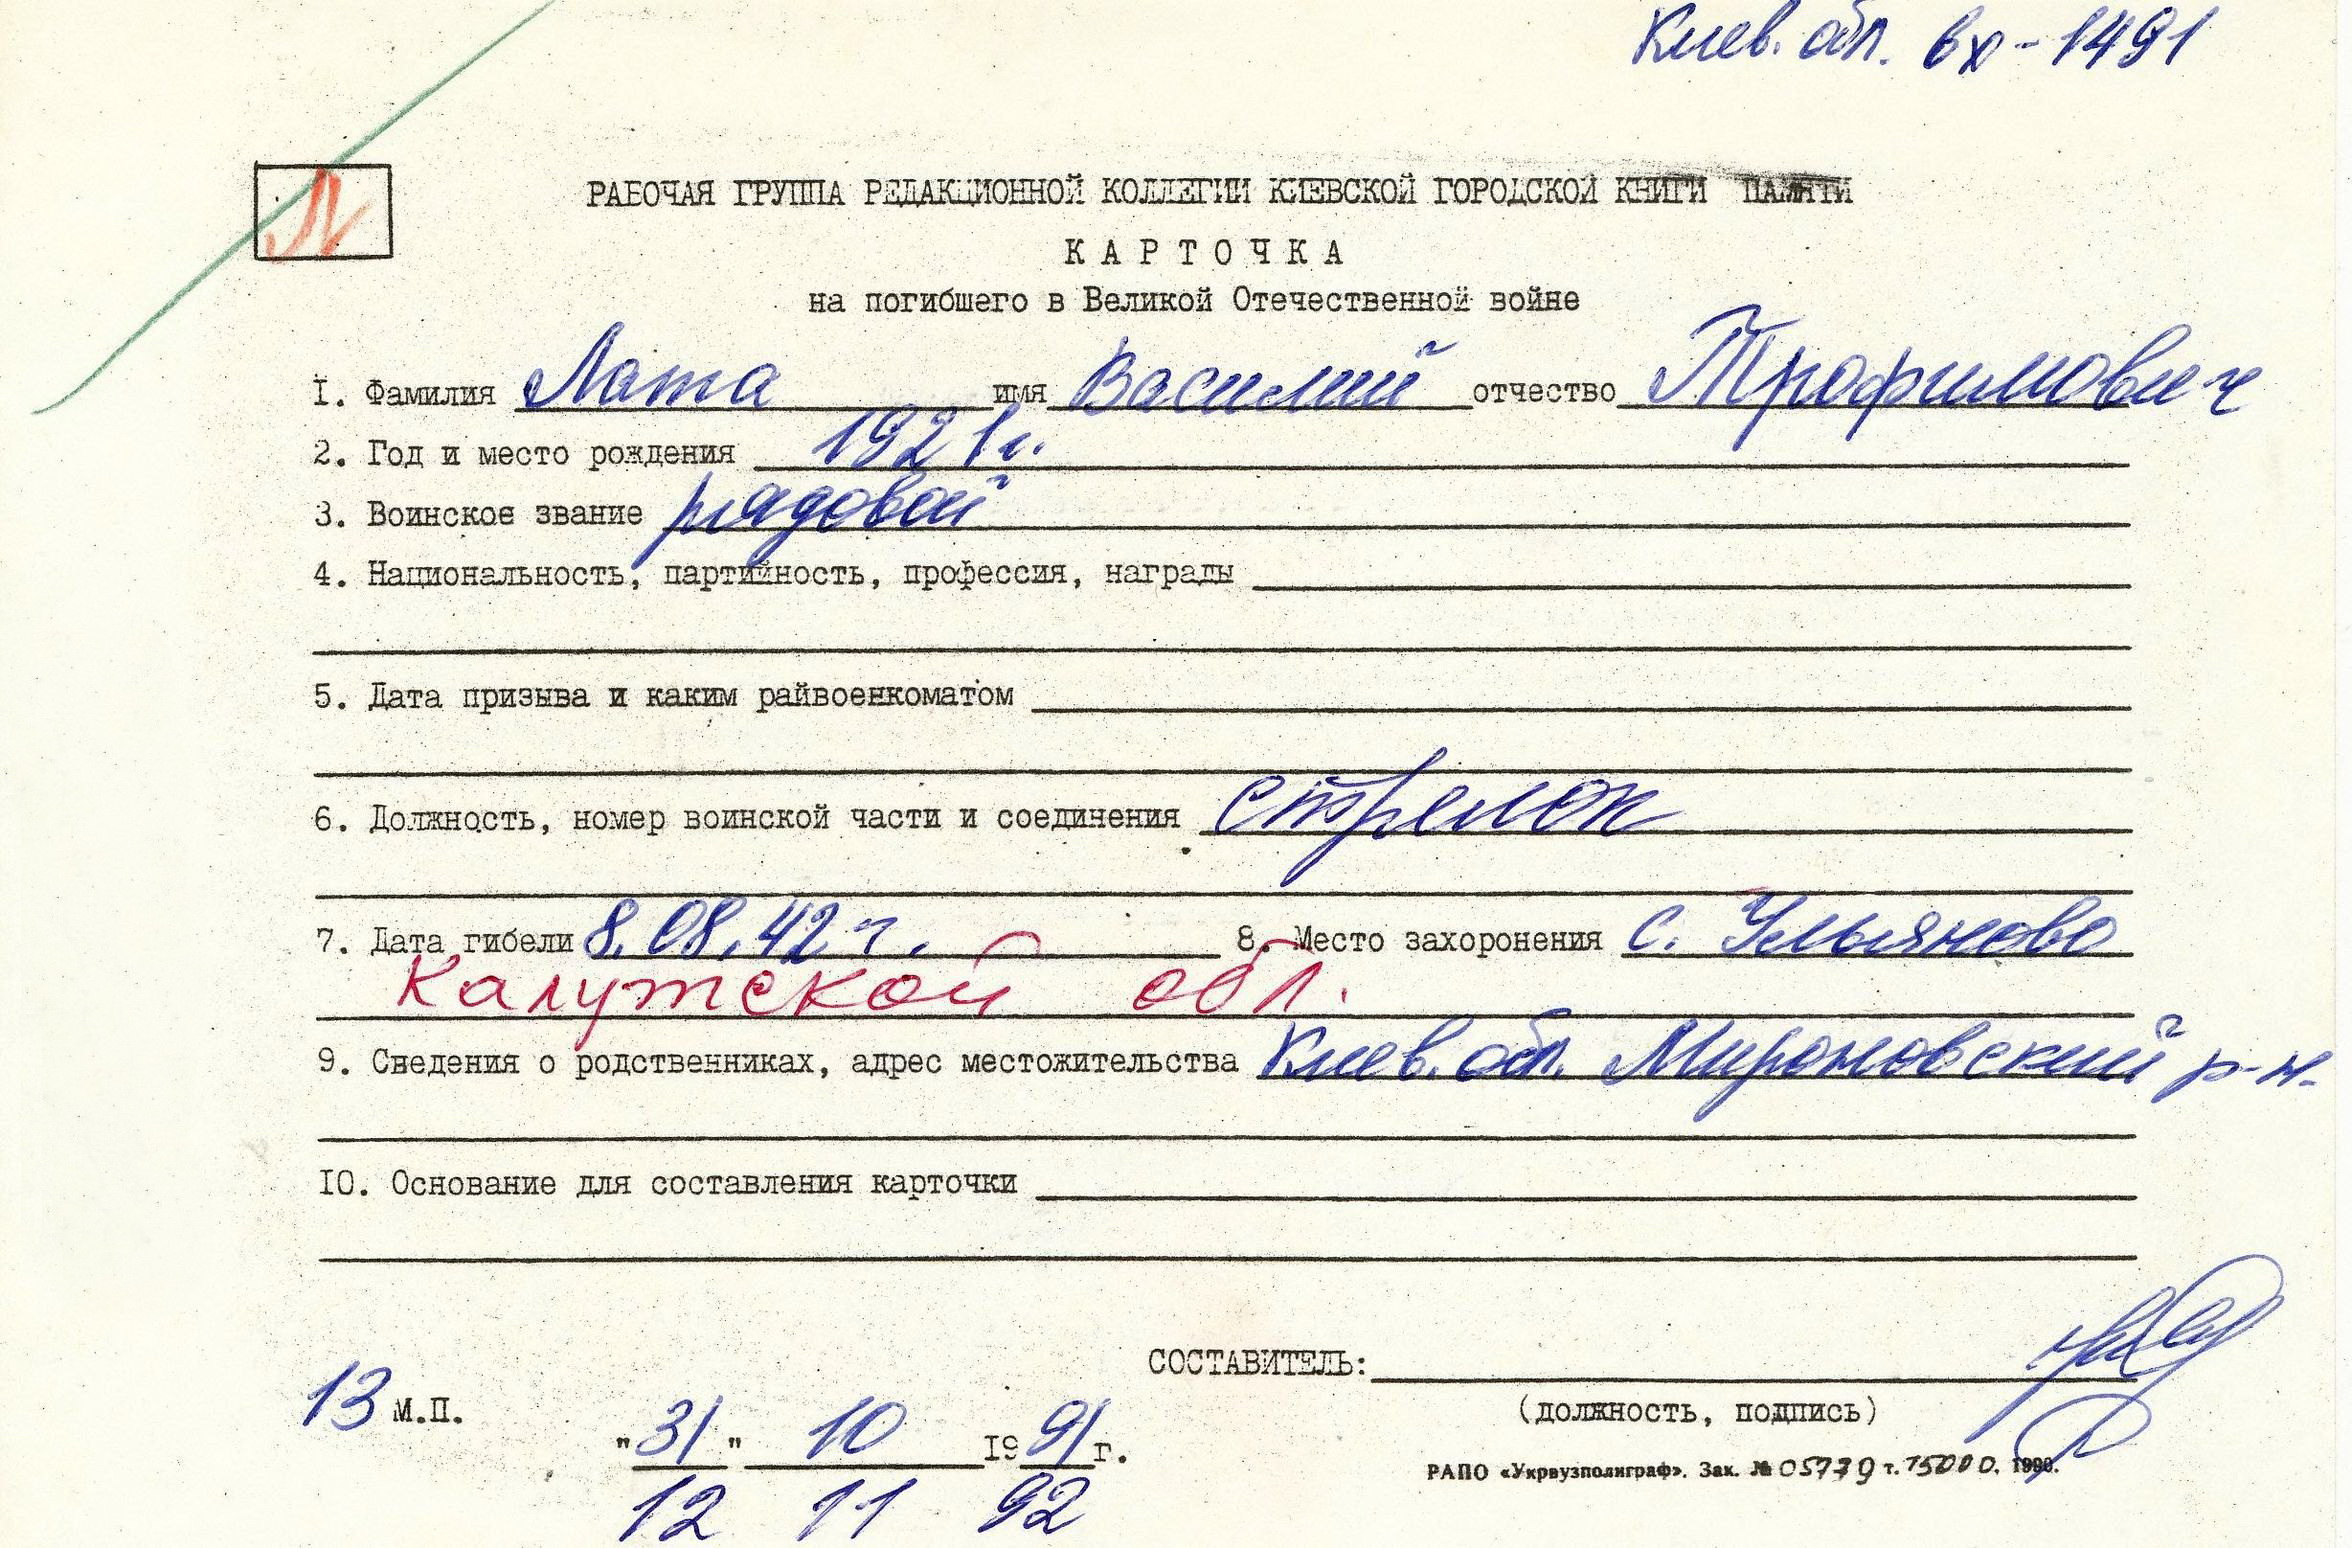 Киев. обл. вх-1491
Л
РАБОЧАЯ ГРУППА РЕДАКЦИОННОЙ КОЛЛЕГИИ КИЕВСКОЙ ГОРОДСКОЙ КНИГИ ПАМЯТИ
КАРТОЧКА
на погибшего в Великой Отечественной войне
I. Фамилия Лата имя Василий отчество Трофимович
2. Год и место рождения 1921г.
3. Воинское звание рядовой
4. Национальность, партийность, профессия, награды
5. Дата призыва и каким райвоенкоматом
6. Должность, номер воинской части и соединения стрелок
7. Дата гибели 8.08.42 г. 8. Место захоронения с. Ульяново
Калужской обл.
9. Сведения о родственниках, адрес местожительства Киев. обл. Мироновский р-н.
IO. Основание для составления карточки
СОСТАВИТЕЛЬ:
13 м.п.
(должность, подпись)
"31" 10 I991г.
РАПО «Укрвузполиграф». Зак. № 05779 т. 15000. 1990.
12 11 92